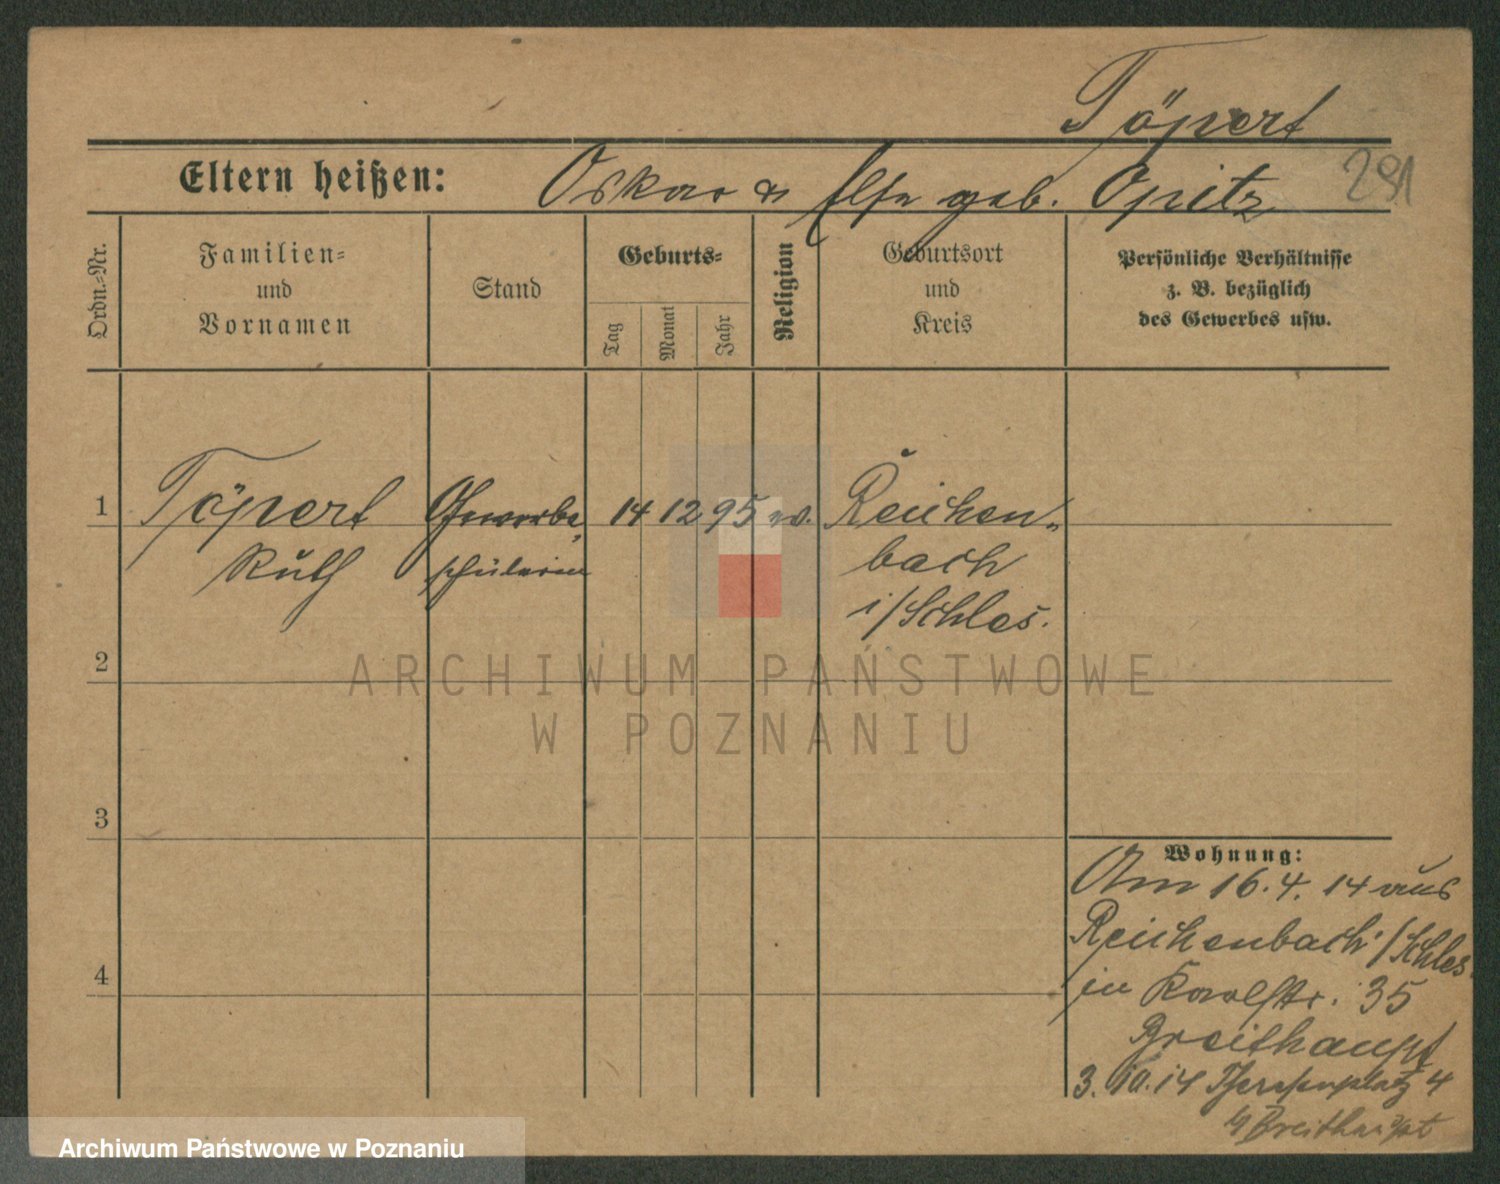 Töpert
291
Eltern heißen: Oskar & Else geb. Opitz
Ordn.-Nr.
Familien-
und
Vornamen
Stand
Geburts-
Tag
Monat
Jahr
Religion
Geburtsort
und
Kreis
Persönliche Verhältnisse
z. B. bezüglich
des Gewerbes usw.
1 Töpert Gewerbe 14 12 95 ev. Reichen-
Ruth schülerin bach
i/Schles.
2
3
4
Wohnung:
Am 16.4.14 aus
Reichenbach i/Schles.
in Karlstr. 35
Breithaupt
3.10.14 Theresenplatz 4
b/ Breithaupt
ARCHIWUM PAŃSTWOWE
W POZNANIU
Archiwum Państwowe w Poznaniu